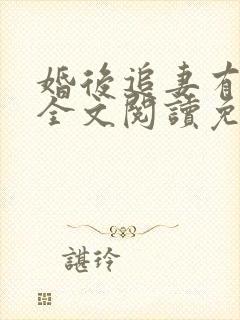 婚後追妻有
全文閱讀免
諶玲